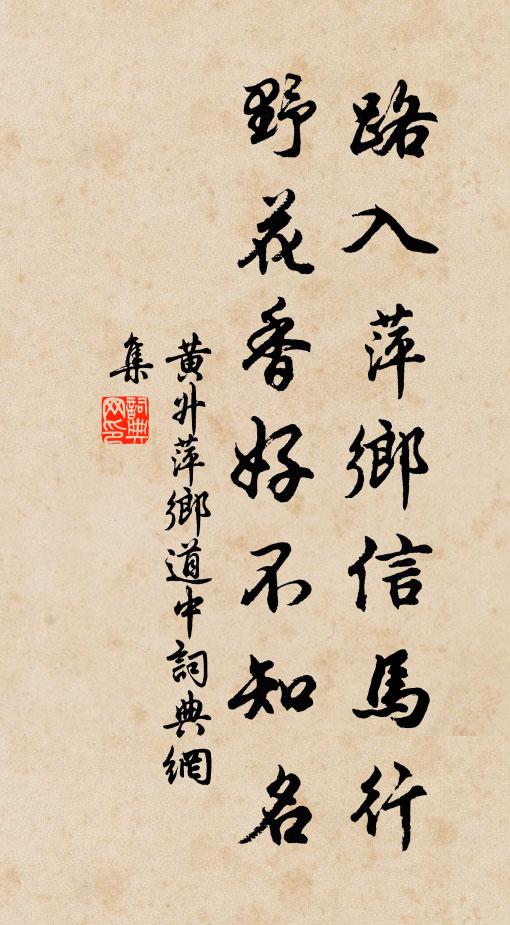 路入萍鄉信馬行
野花香好不知名
黄升萍鄉道中詞典網
集
詞典
网印